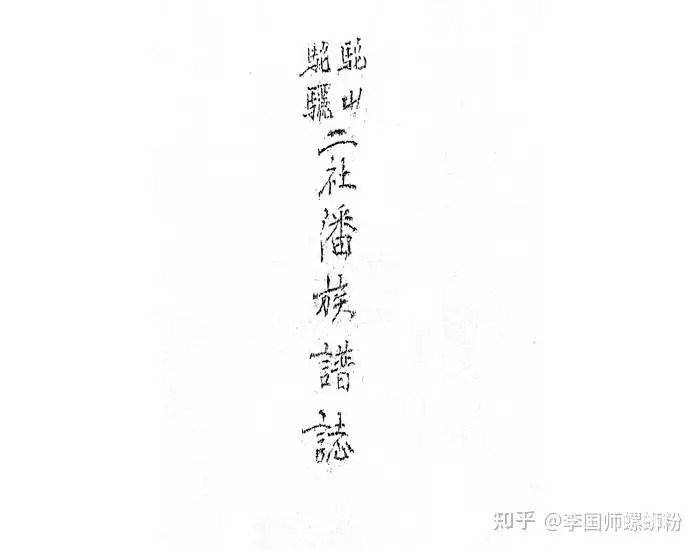 駞山
駞驪
二社潘族譜誌
知乎 @李国师螺蛳粉